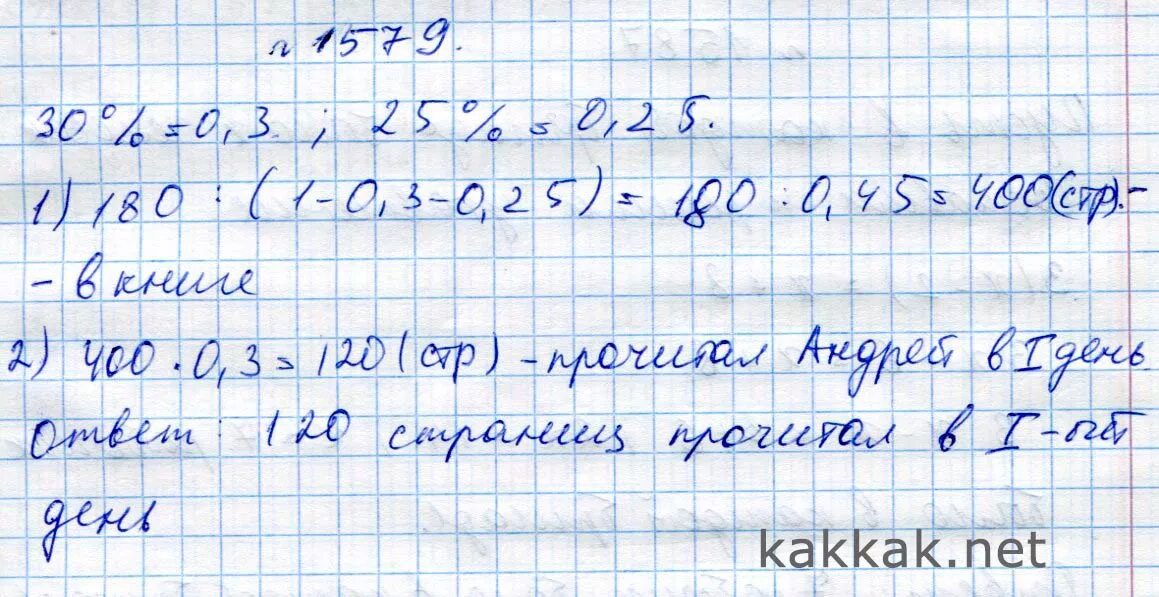 № 1579.
30% = 0,3 ; 25% = 0,25.
1) 180 : (1-0,3-0,25) = 180 : 0,45 = 400(стр).-
- в книге
2) 400 · 0,3 = 120 (стр) - прочитал Андрей в I день
Ответ: 120 страниц прочитал в I-ый
день
kakkak.net